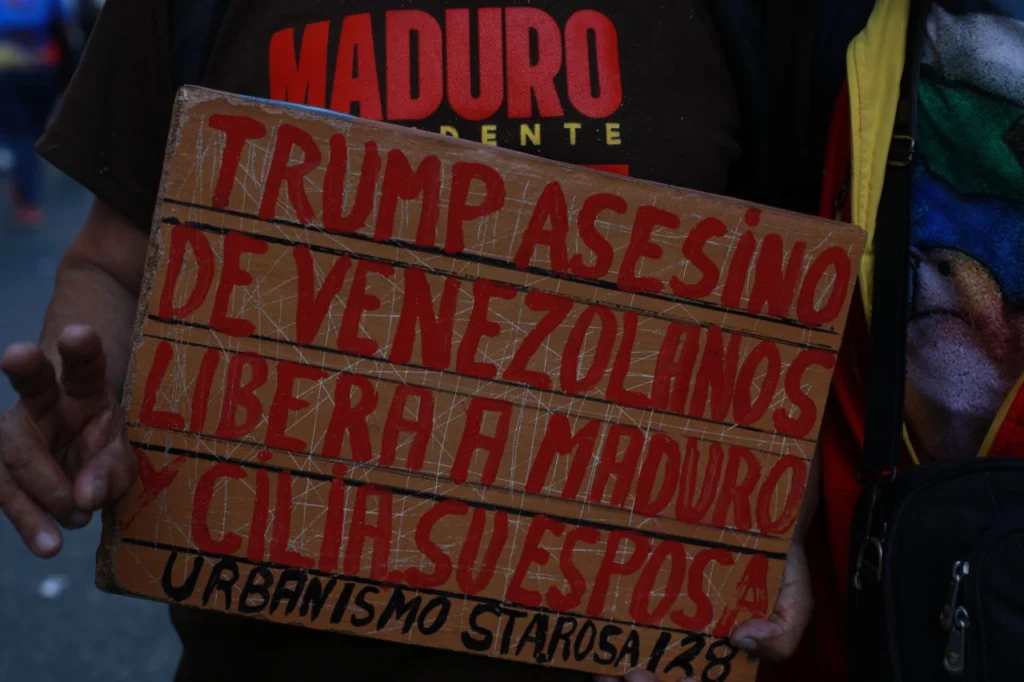 MADURO
DENTE
TRUMP ASESiNO
DE VENEZOLANOS
LIBERA A MADURO
Y CiLiA SU ESPOSA
URBANISMO STAROSA 128